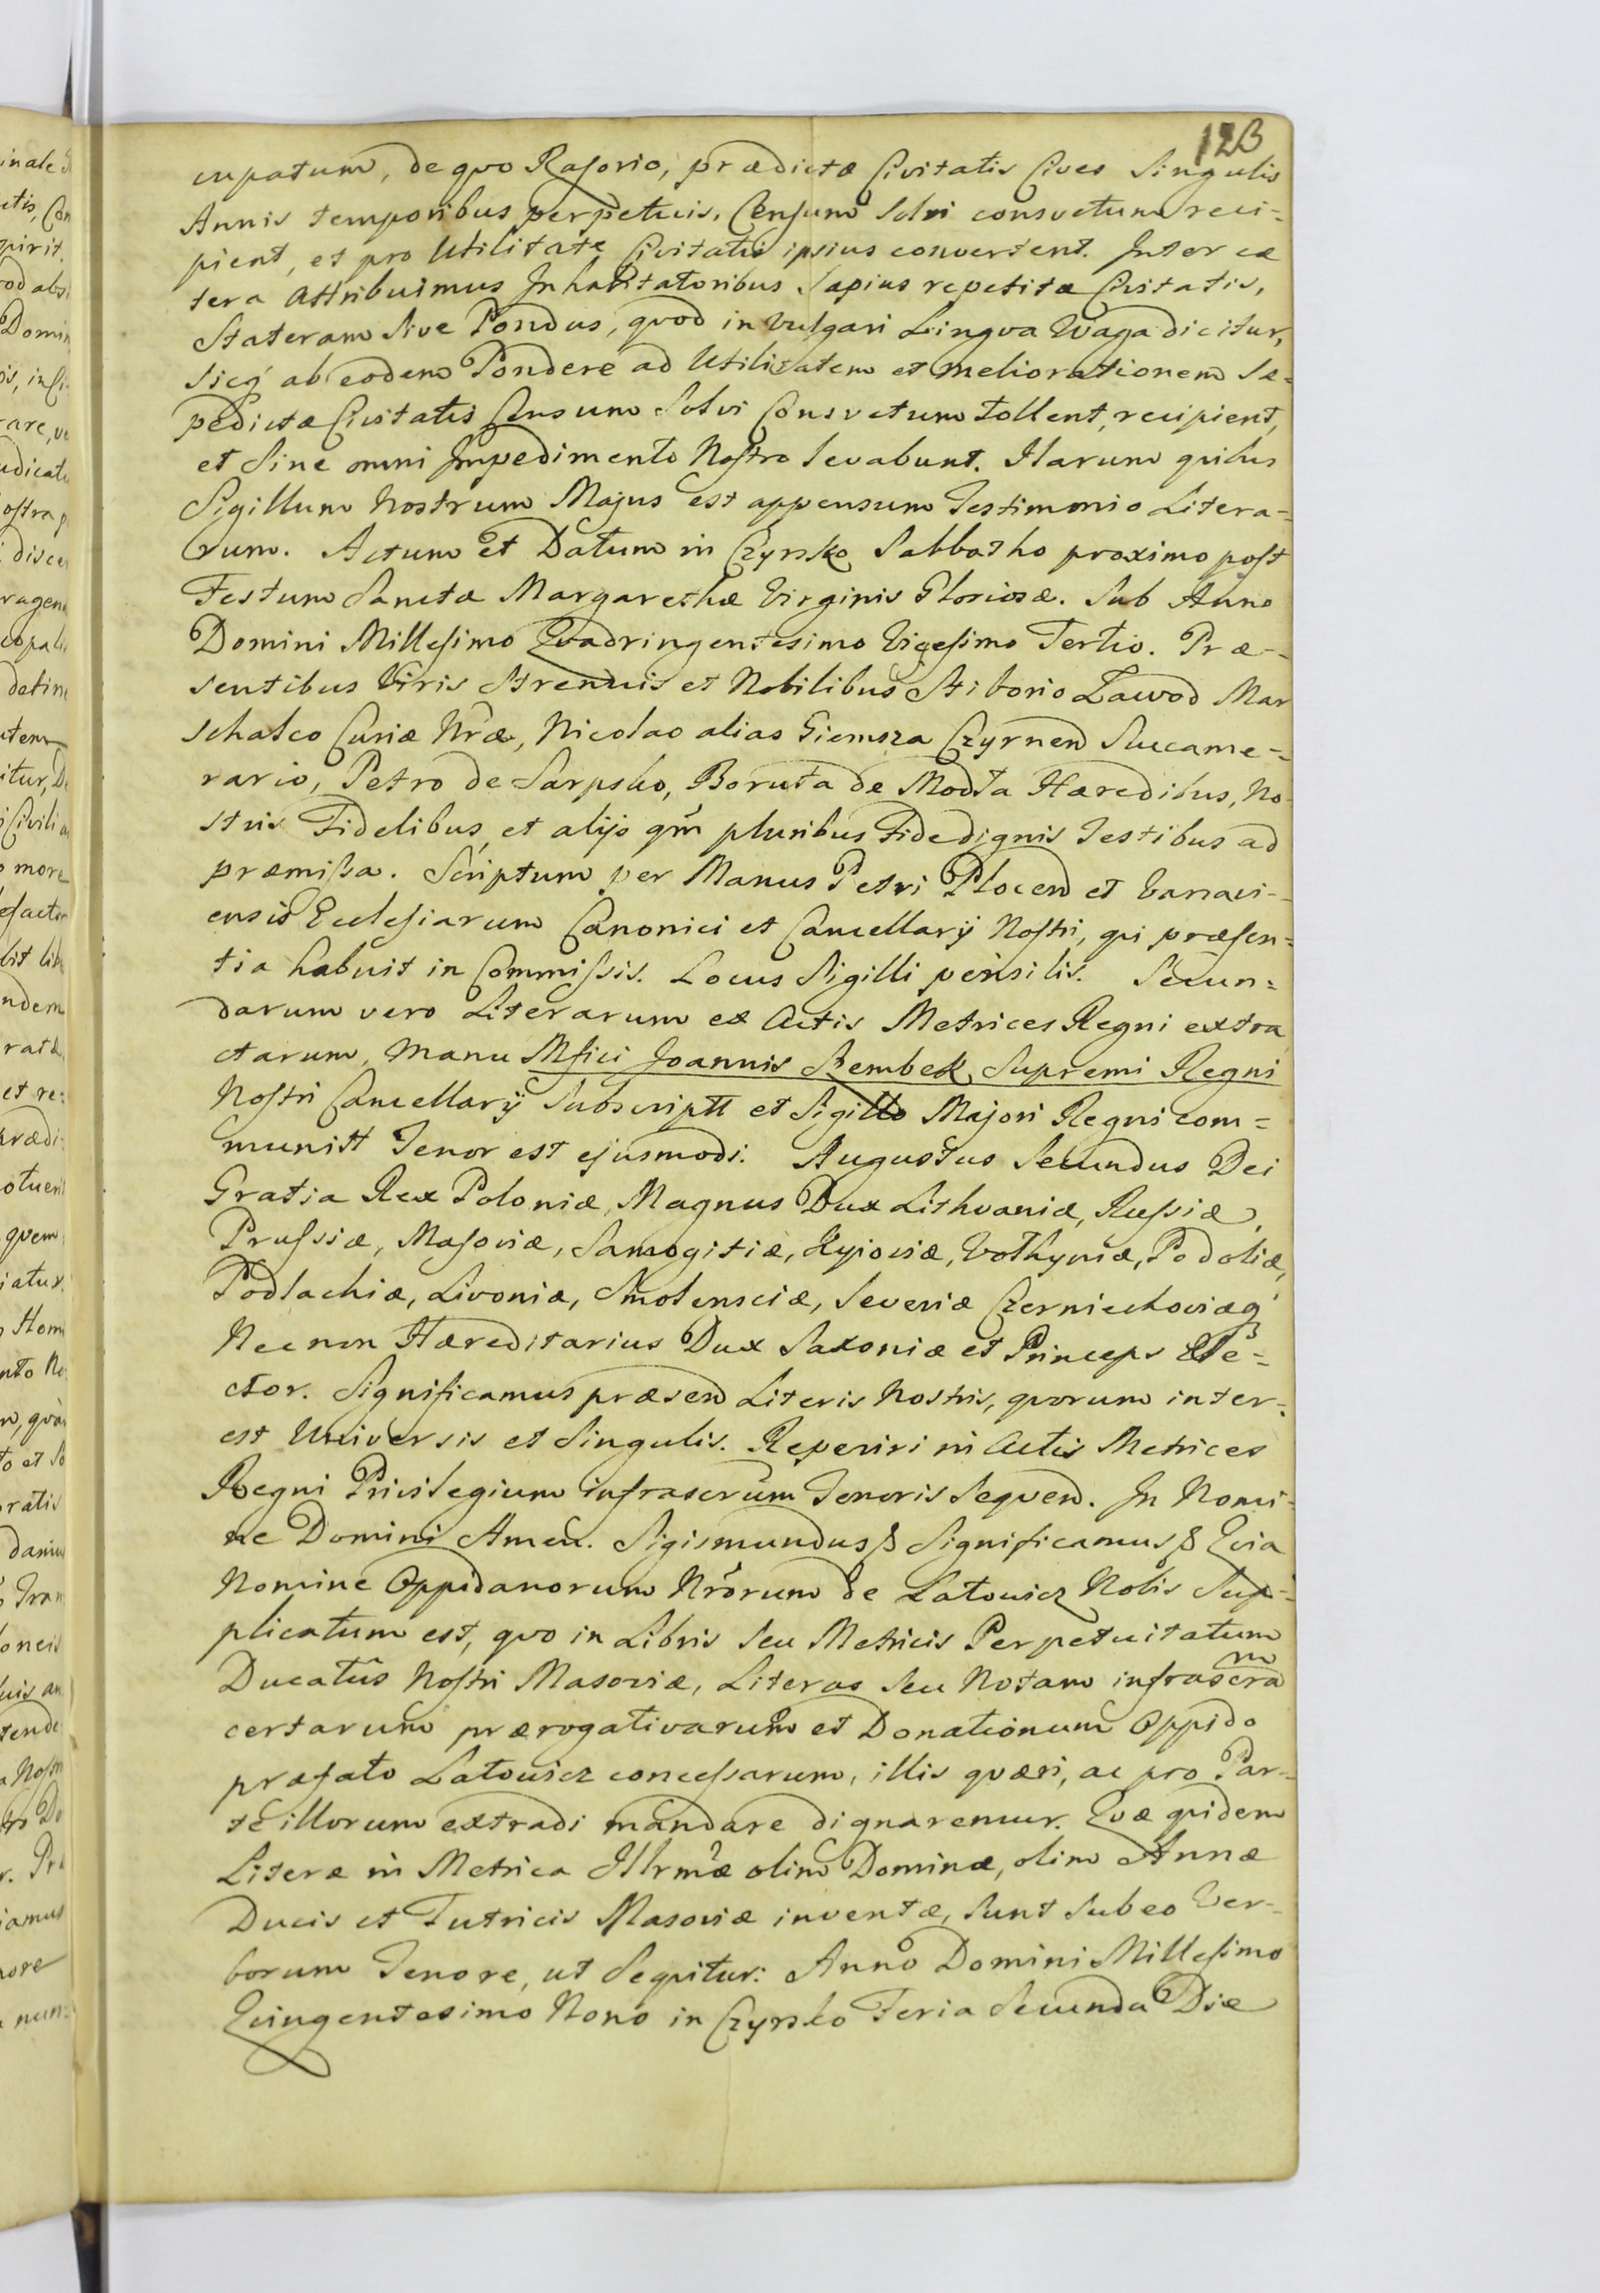 123
cupatum, de qvo Rasorio, prædictæ Civitatis Cives Singulis
Annis temporibus perpetuis, Censum Solvi consvetum reci=
pient, et pro Utilitate Civitatis ipsius convertent. Inter cæ
tera Attribuimus Inhabitatoribus Sæpius repetitæ Civitatis,
Stateram Sive Pondus, qvod in vulgari Lingva Waga dicitur,
Sicq́ ab eodem Pondere ad Utilitatem et meliorationem Sæ=
pedictæ Civitatis Censum Solvi Consvetum tollent, recipient,
et Sine omni Impedimento Nostro levabunt. Harum qvibus
Sigillum Nostrum Majus est appensum Testimonio Litera=
rum. Actum et Datum in Czyrsko Sabbatho proximo post
Festum Sanctæ Margarethæ Virginis Gloriosæ. Sub Anno
Domini Millesimo Qvadringentesimo Vigesimo Tertio. Præ=
sentibus Viris Strenuis et Nobilibus Stiborio Zawod Mar
schalco Curiæ Nræ, Nicolao alias Giemsza Czyrnen Succame=
rario, Petro de Sarpsko, Boruta de Modla Hæredibus, No
stris Fidelibus, et alijs qm̃ pluribus Fide dignis Testibus ad
præmissa. Scriptum per Manus Petri Plocen et Varsavi=
ensis Ecclesiarum Canonici et Cancellarij Nostri, qvi præsen=
tia habuit in Commissis. Locus Sigilli pensilis. Secun=
darum vero Literarum ex Actis Metrices Regni extra
ctarum, Manu Mfici Joannis Szembek Supremi Regni
Nostri Cancellarij Subscriptt et Sigillo Majori Regni com=
munitt Tenor est ejusmodi. Augustus Secundus Dei
Gratia Rex Poloniæ, Magnus Dux Lithvaniæ, Russiæ,
Prussiæ, Masoviæ, Samogitiæ, Kyioviæ, Volhyniæ, Podoliæ,
Podlachiæ, Livoniæ, Smolensciæ, Severiæ Czerniechoviæq́
Necnon Hæreditarius Dux Saxoniæ et Princeps Ele=
ctor. Significamus præsen Literis Nostris, qvorum inter=
est Universis et Singulis. Reperiri in Actis Metrices
Regni Privilegium infrascrum Tenoris Seqven. In Nomi=
ne Domini Amen. Sigismundus ß Significamus ß Qvia
Nomine Oppidanorum Nrõrum de Latowicz Nobis Sup=
plicatum est, qvo in Libris Seu Metricis Perpetuitatum
Ducatûs Nostri Masoviæ, Literas Seu Notam infrascram
certarum prærogativarum et Donationum Oppido
præfato Latowicz concessarum, illis qværi, ac pro Par=
te illorum extradi mandare dignaremur. Qvæ qvidem
Literæ in Metrica Illrmæ olim Dominæ, olim Annæ
Ducis et Tutricis Masoviæ inventæ, Sunt Sub eo Ver=
borum Tenore, ut Seqvitur: Anno Domini Millesimo
Qvingentesimo Nono in Czyrsko Feria Secunda Die